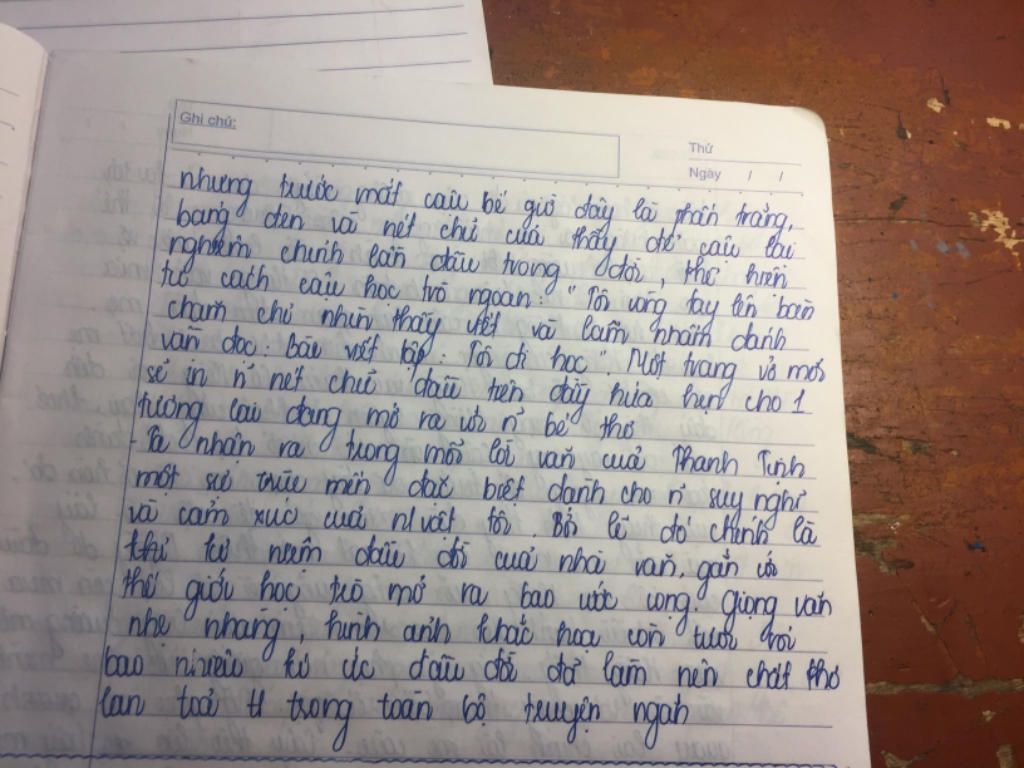 Ghi chú:
Thứ
Ngày / /
nhưng trước mắt cậu bé giờ đây là phấn trắng,
bảng đen và nét chữ của thầy để cậu lại
nghiêm chỉnh lần đầu trong đời, thể hiện
tư cách cậu học trò ngoan: "Tôi vòng tay lên bàn
chăm chỉ nhìn thầy viết và lẩm nhẩm đánh
vần đọc: Bài viết tập: Tôi đi học" Một trang vở mới
sẽ in n~ nét chữ đầu tiên đầy hứa hẹn cho 1
tương lai đang mở ra với n~ bé thơ
- Ta nhận ra trong mỗi lời văn của Thanh Tịnh
một sự trìu mến đặc biệt dành cho n~ suy nghĩ
và cảm xúc của n/vật tôi. Bởi lẽ đó chính là
thứ kỷ niệm đầu đời của nhà văn, gắn với
thế giới học trò mở ra bao ước vọng. Giọng văn
nhẹ nhàng, hình ảnh khắc họa còn tươi rói
bao nhiêu ký ức đầu đời đã làm nên chất thơ
lan toả trong toàn bộ truyện ngắn